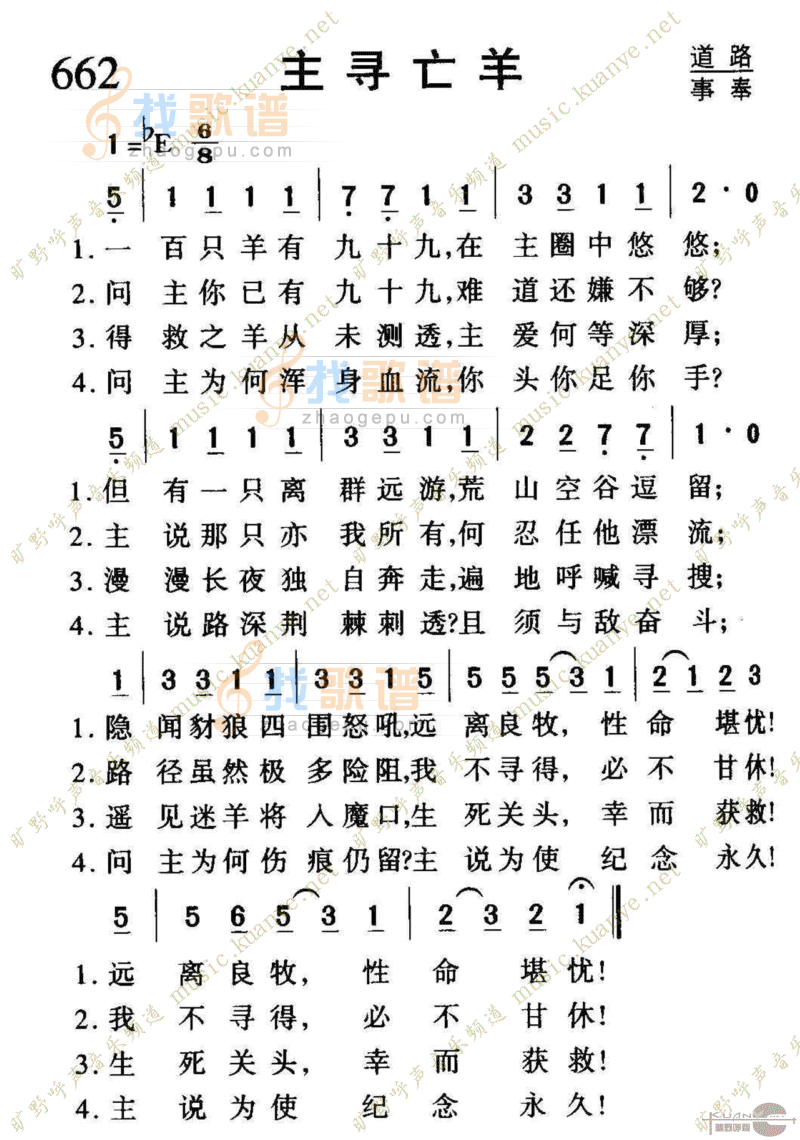 662 主寻亡羊 道路
事奉
1=♭E 6/8
5 | 1 1 1 1 | 7 7 1 1 | 3 3 1 1 | 2 · 0
1.一 百只羊有 九十九,在 主圈中悠 悠;
2.问 主你已有 九十九,难 道还嫌不 够?
3.得 救之羊从 未测透,主 爱何等深 厚;
4.问 主为何浑 身血流,你 头你足你 手?
5 | 1 1 1 1 | 3 3 1 1 | 2 2 7 7 | 1 · 0
1.但 有一只离 群远游,荒 山空谷逗 留;
2.主 说那只亦 我所有,何 忍任他漂 流;
3.漫 漫长夜独 自奔走,遍 地呼喊寻 搜;
4.主 说路深荆 棘刺透?且 须与敌奋 斗;
1 | 3 3 1 1 | 3 3 1 5 | 5 5 5 3 1 | 2 1 2 3
1.隐 闻豺狼四 围怒吼,远 离良牧, 性命 堪忧!
2.路 径虽然极 多险阻,我 不寻得, 必不 甘休!
3.遥 见迷羊将 入魔口,生 死关头, 幸而 获救!
4.问 主为何伤 痕仍留?主 说为使 纪念 永久!
5 | 5 6 5 3 1 | 2 3 2 1 ‖
1.远 离良牧, 性 命 堪忧!
2.我 不寻得, 必 不 甘休!
3.生 死关头, 幸 而 获救!
4.主 说为使 纪 念 永久!
找歌谱
zhaogepu.com
找歌谱
zhaogepu.com
找歌谱
zhaogepu.com
旷野呼声音乐频道 music.kuanye.net
旷野呼声音乐频道 music.kuanye.net
旷野呼声音乐频道 music.kuanye.net
KUANYE.NET
旷野呼声